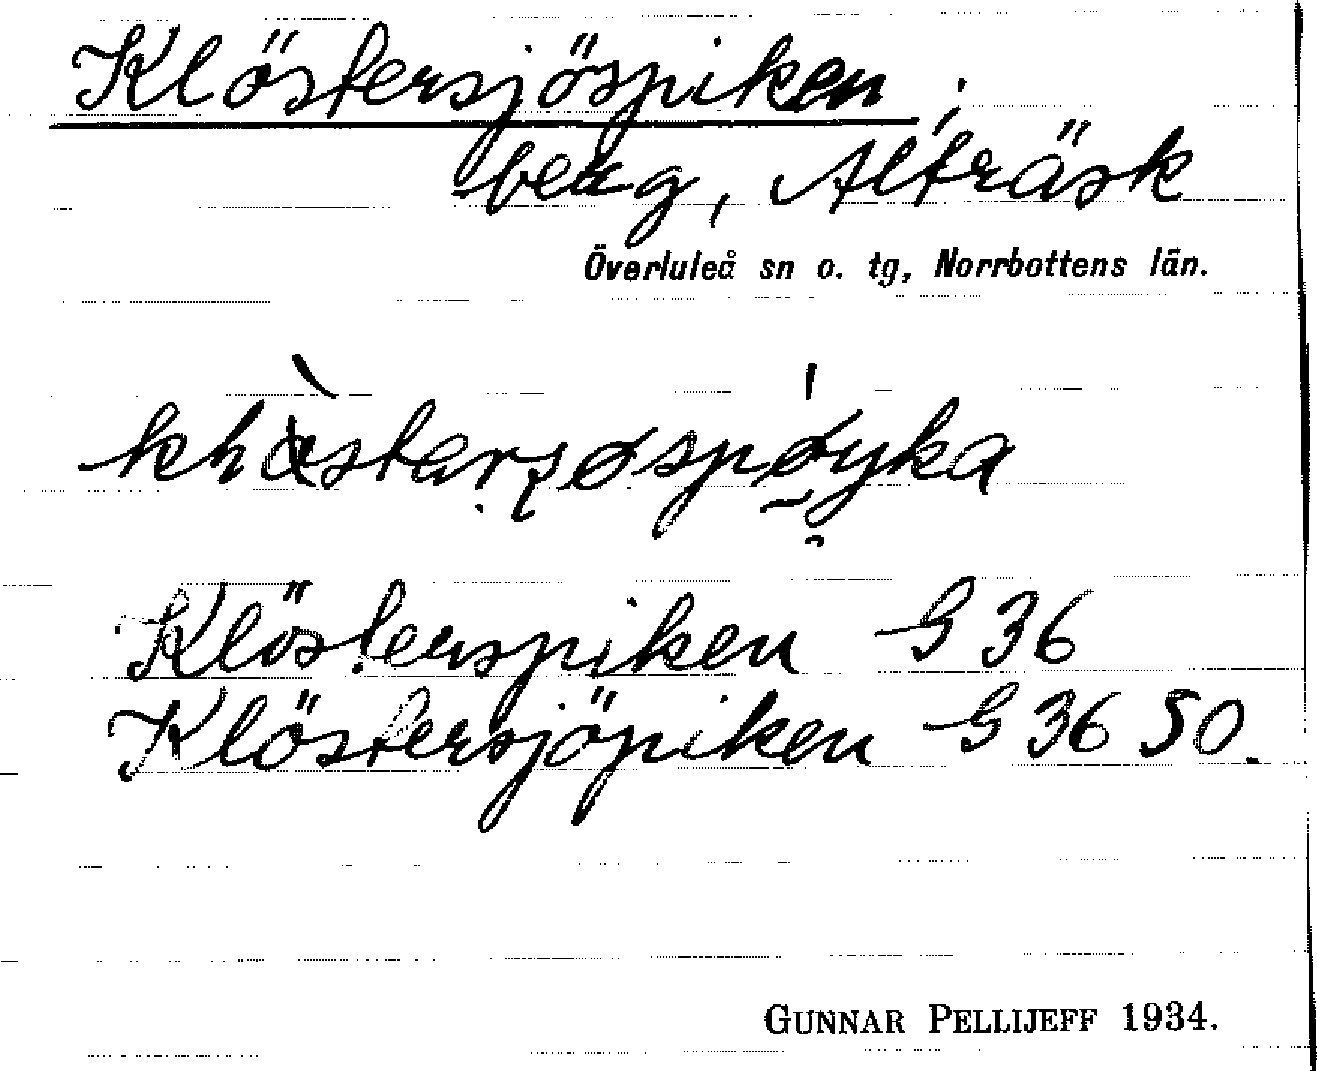 Klöstersjöspiken,
berg, Alträsk
Överluleå sn o. tg, Norrbottens län.
Klösterspiken G 36
Klöstersjöpiken G 36 50.
GUNNAR PELLIJEFF 1934.